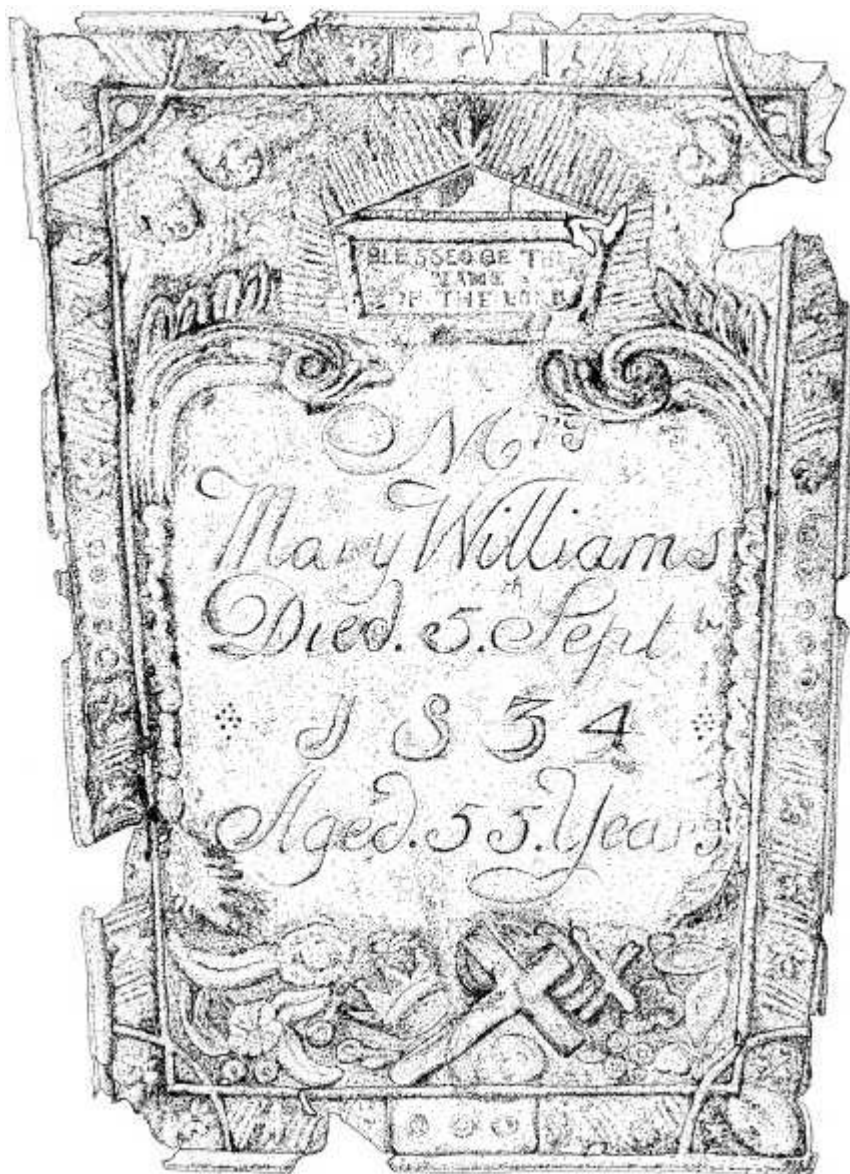 BLESSED BE THE
NAME
OF THE LORD
Mrs
Mary Williams
Died. 5.th Septbr
1834
Aged. 55. Years